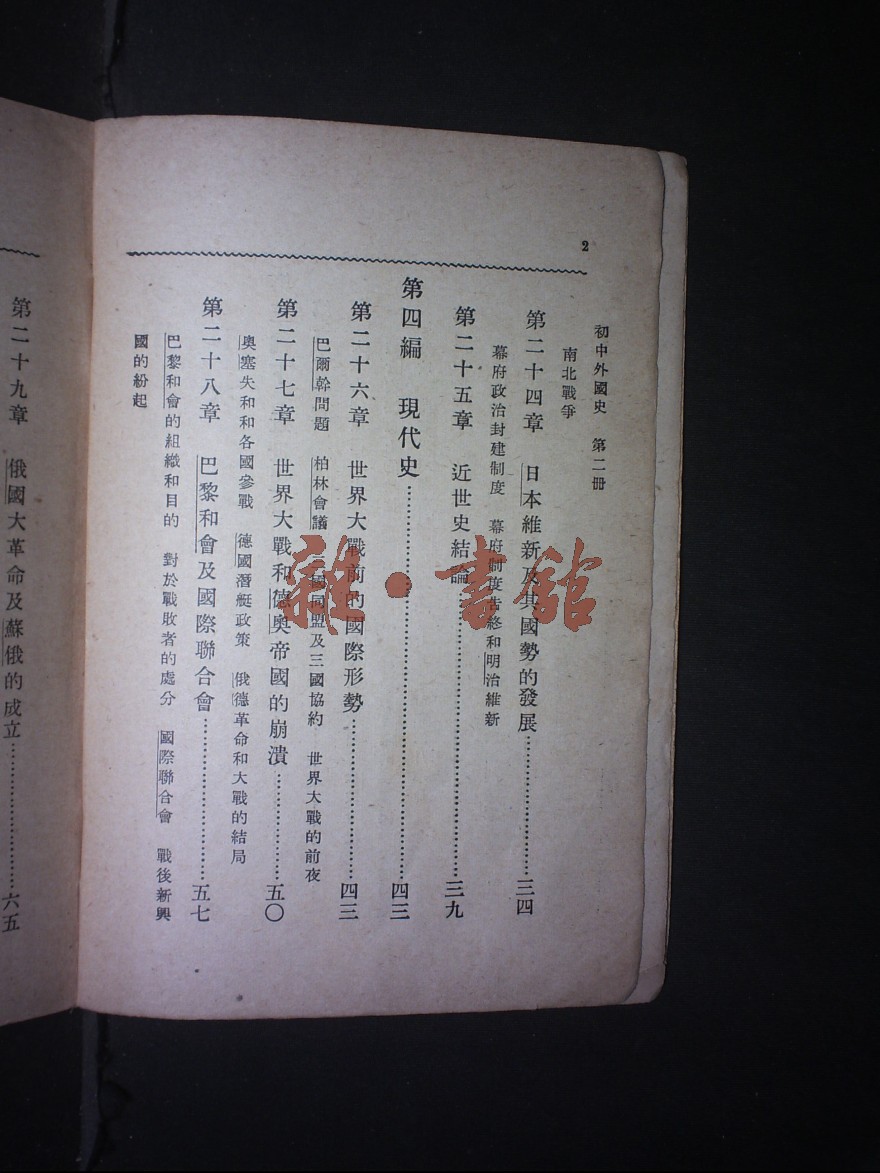 2
初中外國史 第二冊
南北戰爭
第二十四章 日本維新及其國勢的發展…………三四
幕府政治封建制度 幕府制度告終和明治維新
第二十五章 近世史結論…………三九
第四編 現代史…………四三
第二十六章 世界大戰前的國際形勢…………四三
巴爾幹問題 柏林會議 三國同盟及三國協約 世界大戰的前夜
第二十七章 世界大戰和德奧帝國的崩潰…………五〇
奧塞失和和各國參戰 德國潛艇政策 俄德革命和大戰的結局
第二十八章 巴黎和會及國際聯合會…………五七
巴黎和會的組織和目的 對於戰敗者的處分 國際聯合會 戰後新興
國的紛起
第二十九章 俄國大革命及蘇俄的成立…………六五
雜·書館